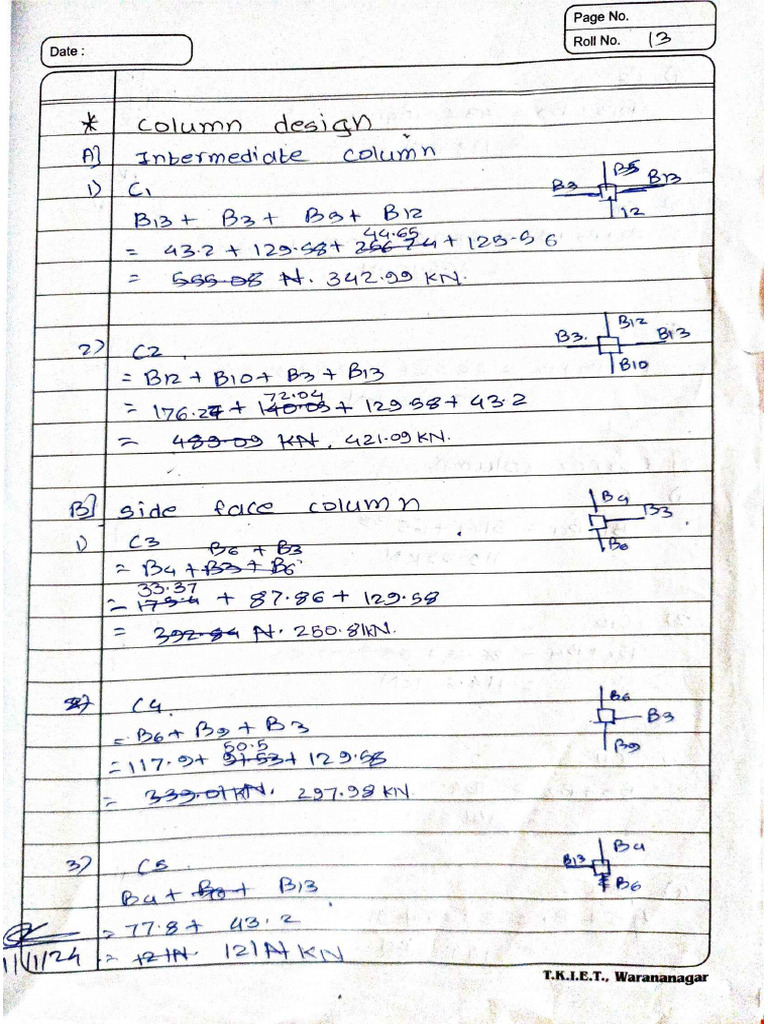 Page No.
Date :
Roll No. 13
* Column design
A] Intermediate column
1) C1
B5
B3
B13
12
B13 + B3 + B9 + B12
44.65
= 43.2 + 129.58 + 256.74 + 125.56
= 555.08 N. 342.99 KN.
B12
B3.
B13
B10
2) C2
= B12 + B10 + B3 + B13
72.04
= 176.27 + 140.03 + 129.58 + 43.2
= 489.09 KN. 421.09 KN.
B4
B3
B6
B] side face column
1) C3
B6 + B3
= B4 + B3 + B6
33.37
= 175.4 + 87.86 + 129.58
= 392.84 N. 250.81KN.
B6
B3
B9
C4
= B6 + B9 + B3
50.5
= 117.9 + 91.53 + 129.58
= 339.01KN. 297.98 KN.
B4
B13
B6
3) C5
B4 + B13
= 77.8 + 43.2
= 121N. 121 N KN
11/1/24
T.K.I.E.T., Warananagar